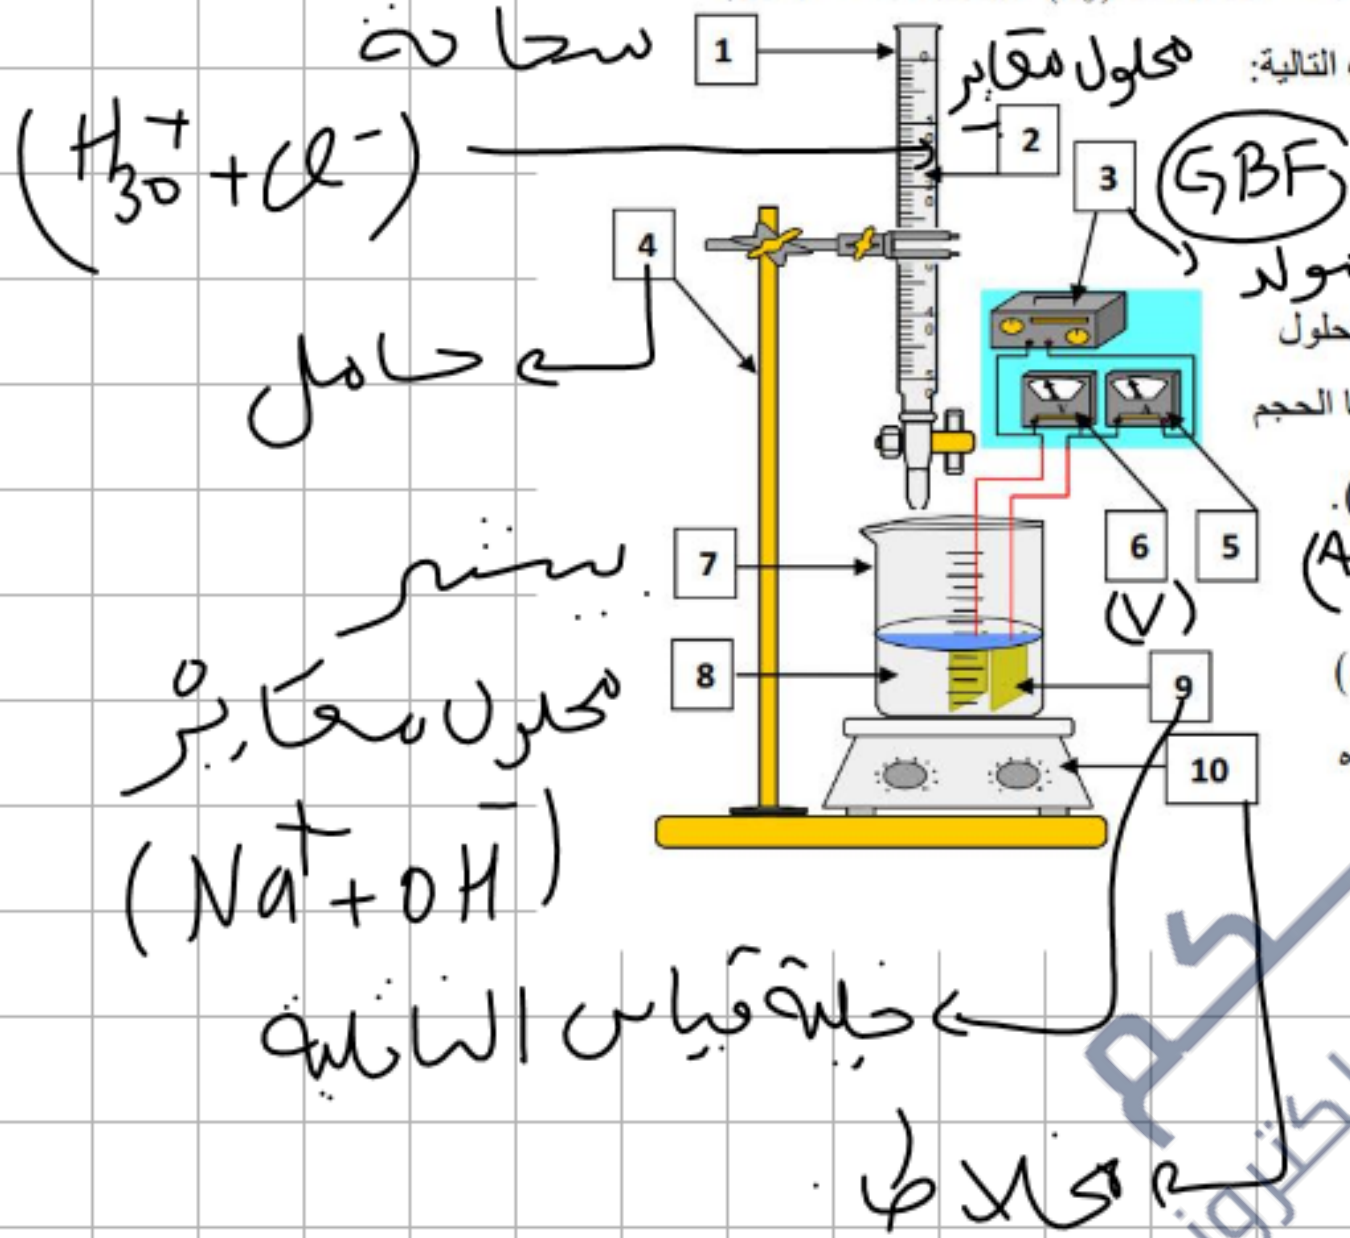 سحاحة
1
محلول معاير
التالية:
(H3O+ + Cl-)
2
3
GBF
مولد
4
حامل
حلول
ا الحجم
بيشر
7
6
5
(V)
(A
محلول معايَر
8
9
(Na+ + OH-)
10
خلية قياس الناقلية
مخلاط